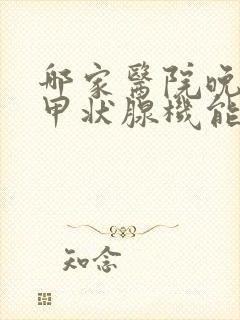 哪家醫院晚
甲狀腺機能
知念